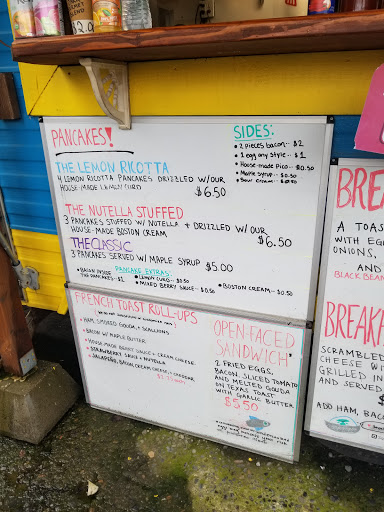 PANCAKES!
THE LEMON RICOTTA
4 LEMON RICOTTA PANCAKES DRIZZLED W/OUR
HOUSE-MADE LEMON CURD $6.50
THE NUTELLA STUFFED
3 PANCAKES STUFFED W/ NUTELLA + DRIZZLED W/ OUR
HOUSE-MADE BOSTON CREAM $6.50
THE CLASSIC
3 PANCAKES SERVED W/ MAPLE SYRUP $5.00
PANCAKE EXTRAS:
• BACON INSIDE
THE PANCAKES - $1
• LEMON CURD - $0.50
• MIXED BERRY SAUCE - $0.50
• BOSTON CREAM - $0.50
SIDES:
• 2 pieces bacon - $2
• 1 egg any style - $1
• House-made Pico - $0.50
• Maple Syrup - $0.50
• Sour cream - $0.50
FRENCH TOAST ROLL-UPS
• HAM, SMOKED GOUDA + SCALLIONS
• BACON W/ MAPLE BUTTER
• HOUSE-MADE BERRY SAUCE + CREAM CHEESE
• STRAWBERRY SAUCE + NUTELLA
• JALAPEÑO, BACON, CREAM CHEESE + CHEDDAR
OPEN-FACED
SANDWICH
2 FRIED EGGS,
BACON, SLICED TOMATO
AND MELTED GOUDA
ON TEXAS TOAST
WITH GARLIC BUTTER
$5.50
BRE
A TOAS
WITH EG
ONIONS,
AND
BLACK BEAN
BREAKF
SCRAMBLED
CHEESE WIT
GRILLED IN
AND SERVED
ADD HAM, BAC